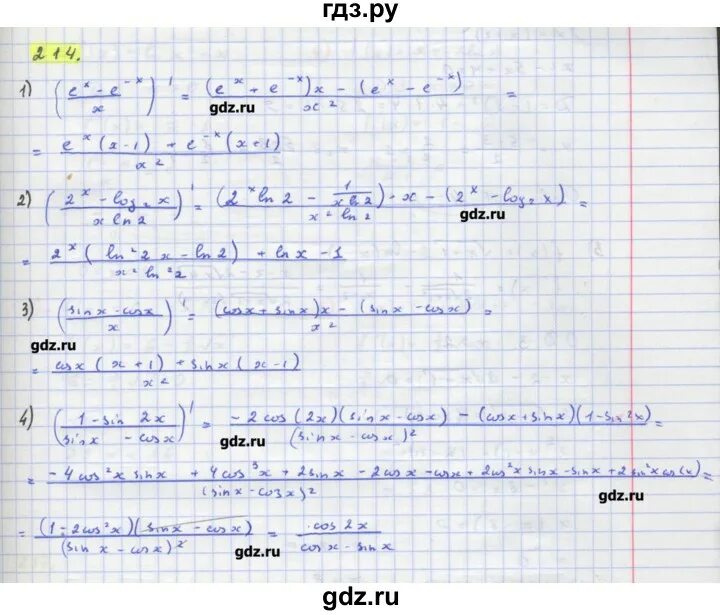 гдз.ру
214.
1) ((e^x - e^{-x})/x)' = ((e^x + e^{-x})x - (e^x - e^{-x}))/x^2 =
gdz.ru
= (e^x(x-1) + e^{-x}(x+1))/x^2
2) ((2^x - log_2 x)/(x ln 2))' = ((2^x ln 2 - 1/(x ln 2))·x - (2^x - log_2 x))/(x^2 ln 2) =
gdz.ru
= (2^x(ln^2 2 x - ln 2) + ln x - 1)/(x^2 ln^2 2)
3) ((sin x - cos x)/x)' = ((cos x + sin x)x - (sin x - cos x))/x^2 =
gdz.ru
= (cos x(x+1) + sin x(x-1))/x^2
4) ((1 - sin 2x)/(sin x - cos x))' = (-2cos(2x)(sin x - cos x) - (cos x + sin x)(1 - sin 2x))/(sin x - cos x)^2 =
gdz.ru
= (-4cos^2 x sin x + 4cos^3 x + 2sin x - 2cos x - cos x + 2cos^2 x sin x - sin x + 2sin^2 x cos(x))/(sin x - cos x)^2 =
gdz.ru
= ((1 - 2cos^2 x)(sin x - cos x))/(sin x - cos x)^2 = cos 2x/(cos x - sin x)
gdz.ru
gdz.ru